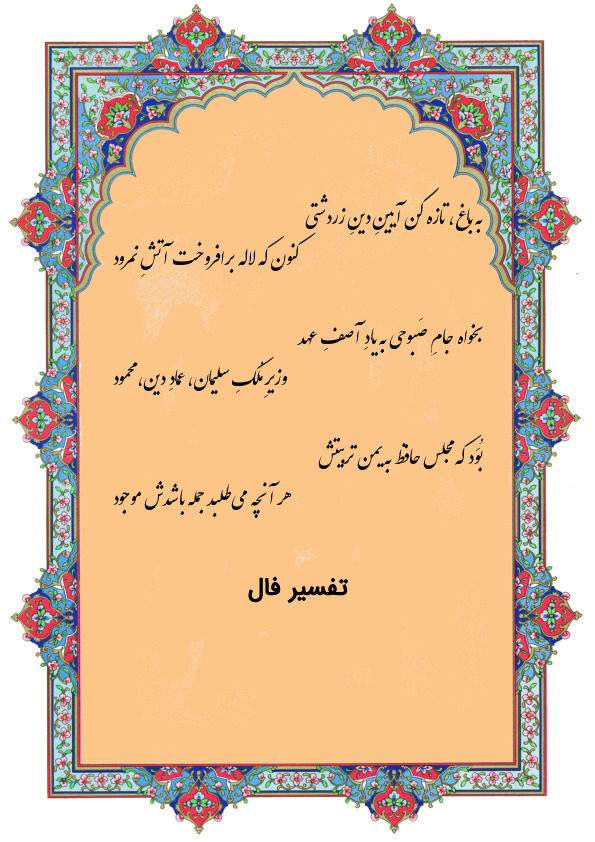 به باغ ، تازه کن آیینِ دینِ زردشتی
کنون که لاله برافروخت آتشِ نمرود
بخواه جامِ صَبوحی به یادِ آصفِ عهد
وزیرِ مُلکِ سلیمان، عمادِ دین، محمود
بُوَد که مجلس حافظ به یمن تربیتش
هر آنچه می‌طلبد جمله باشدش موجود
تفسیر فال